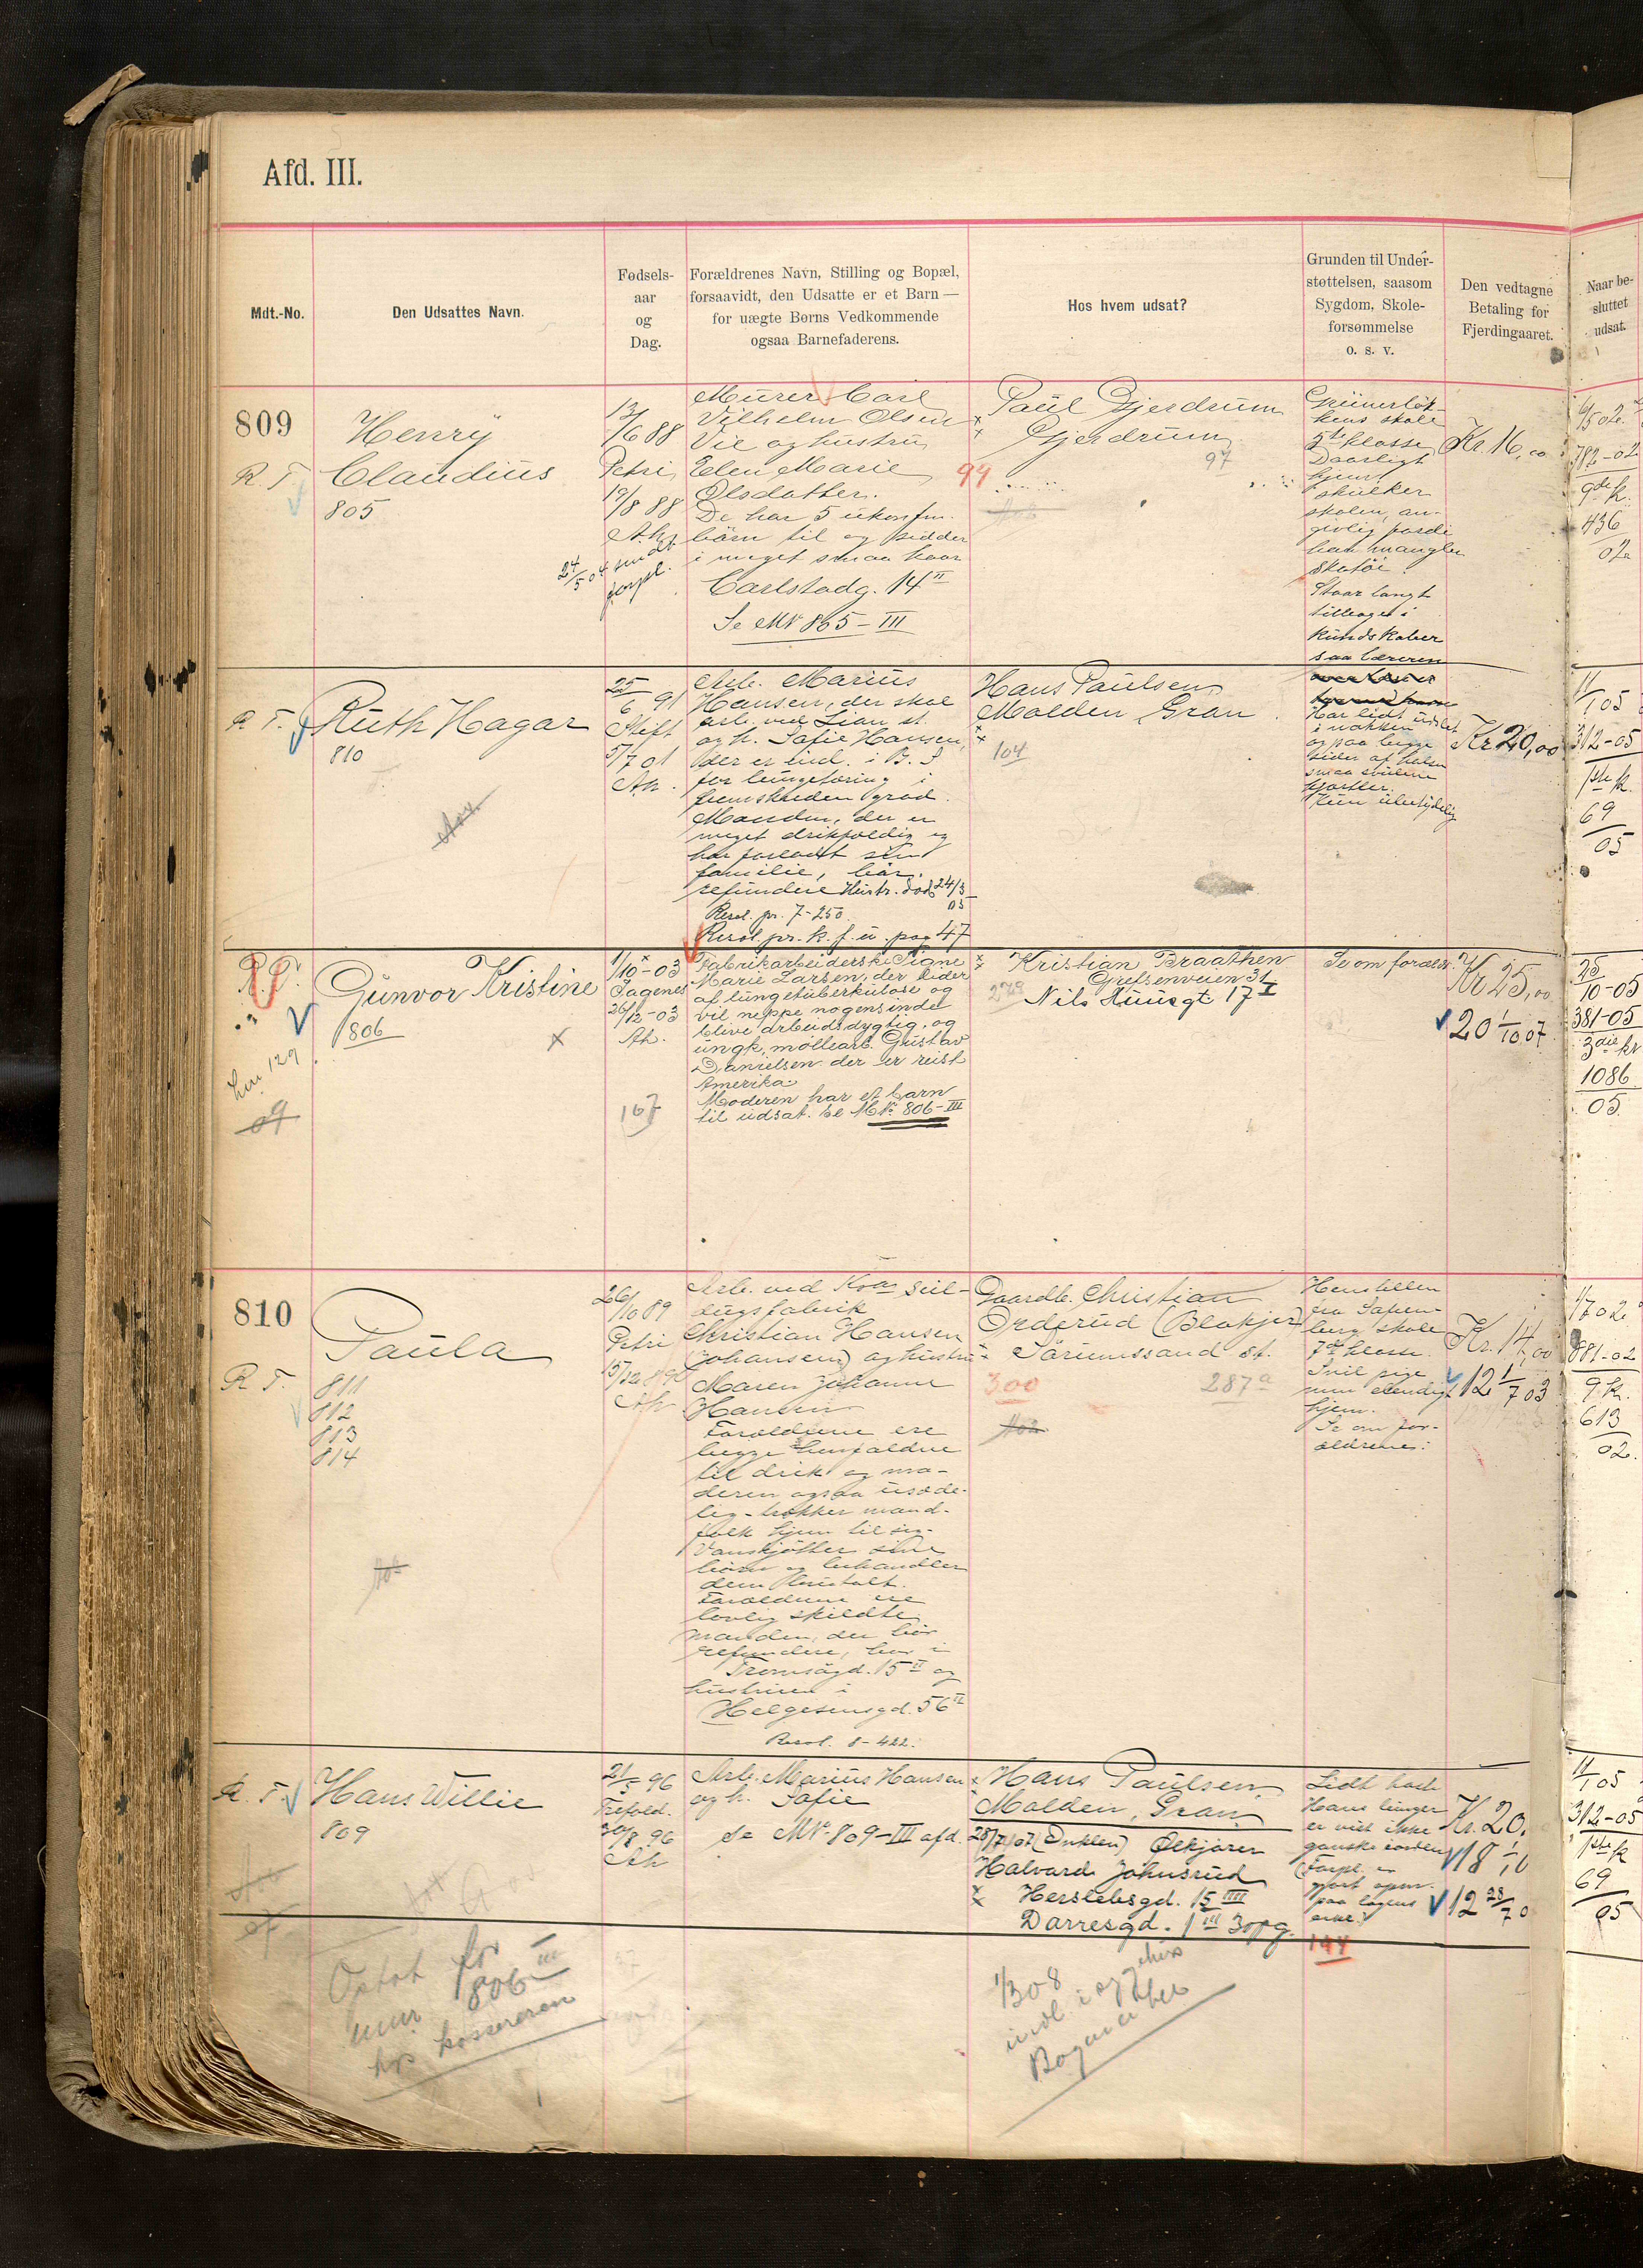 Afd. III.
Mdt.-No.
Den Udsattes Navn.
Fødsels-
aar
og
Dag.
Forældrenes Navn, Stilling og Bopæl,
forsaavidt, den Udsatte er et Barn —
for uægte Børns Vedkommende
ogsaa Barnefaderens.
Hos hvem udsat?
Grunden til Under-
støttelsen, saasom
Sygdom, Skole-
forsømmelse
o. s. v.
Den vedtagne
Betaling for
Fjerdingaaret.
Naar be-
sluttet
udsat.
809
R. T.
Henry
Claudius
805
13/6 88
Petri
19/8 88
Ah.
24/5 04
Murer Carl
Vilhelm Olsen
Vie og hustru
Elen Marie
Olsdatter.
De har 5 ukonfm.
børn til og sidder
i meget smaa kaar
Carlstadg. 14 II
Se MN 865 – III
Paul Gjerdrum
Gjerdrum
94
97
Grünerløk-
kens skole
5te klasse
Daarligt
hjem
skulker
skolen, an-
givlig fordi
han mangler
skotøi.
Staar langt
tilbage i
kundskaber
saa læreren
Kr. 16,00
6/5 02.
782-02
9de k.
436
02
R. T.
Ruth Hagar
810
25/6 91
Stift
5/7 01
Ah.
Arb. Marius
Hansen, der skal
arb. ved Lian st.
og h. Sofie Hansen,
der er ind. i B. S
for lungetæring i
fremskreden grad.
Manden, der er
meget drikfældig og
har forladt sin
familie, bør
refundere Hustr. død 24/3 05
Resol. pr. 7-250.
Resol. pr. k. f. u. pag 47
Hans Paulsen,
Molden, Gran.
104
Har lidt udslet
i nakken
ogsaa begge
sider af halsen
smaa svulne
kjertler.
Kun ubetydelig
Kr 20,00
11/1 05
312-05
1ste k.
69
05
R. T.
Gunvor Kristine
806
129
09
1/10-03
Sagenes
26/12-03
Ah.
167
Fabrikarbeiderske Signe
Marie Larsen, der lider
af lungetuberkulose og
vil neppe nogensinde
blive arbeidsdygtig, og
ungk. møllearb. Gustav
Danielsen der er reist
Amerika
Moderen har et barn
til udsat. Se MNo 806-III
Kristian Braathen
Grefsenveien 31
278
Nils Huusgt. 17 I
Se om forældr.
Kr 25,00
20 1/10 07
25/10-05
381-05
3die kr
1086
05.
810
R. T.
Paula
811
812
813
814
26/10 89
Petri
15/12 89
Ah
Arb. ved Kra Seil-
dugsfabrik
Christian Hansen
(Johansen) og hustru
Maren Johanne
Hansen
Forældrene ere
begge henfaldne
til drik og mo-
deren ogsaa usæde-
lig - trækker mand-
folk hjem til sig.
Vanskjøtter sine
børn og behandler
dem brutalt.
Forældrene ere
lovlig skildte
manden, der bør
refundere, bor i
Tromsøgd. 15 II og
hustruen i
Helgesensgd. 56 II
Resol. 8-422.
Gaardb. Christian
Orderud (Blakjer)
Sørumsand st.
300
287a
Henstillen
fra Sofien-
berg skole
7de klasse
Snil pige
men elendigt
hjem.
Se om for-
ældrene:
Kr. 14,00
12 1/7 03
1/7 02
881-02
9. k.
613
02.
R. T.
Hans Willie
809
21/5 96
Trefold.
30/8 96
Ah
Arb. Marius Hansen
og h. Sofie
Se MNo 809-III afd.
Hans Paulsen,
Molden, Gran
28/7 07 (Onklen) Ølkjører
Halvard Johnsrud
Herslebsgd. 15 IIII
Darresgd. 1 III 3 opg.
Lidt
Hans lunger
er vist ikke
ganske iorden
144
Kr. 20.
18 1/1 0
12 28/7 0
11/1 05
312-05
1ste k
69
05
Optat for
mnr 806 III
hos kassereren
1/3 08
indl. i